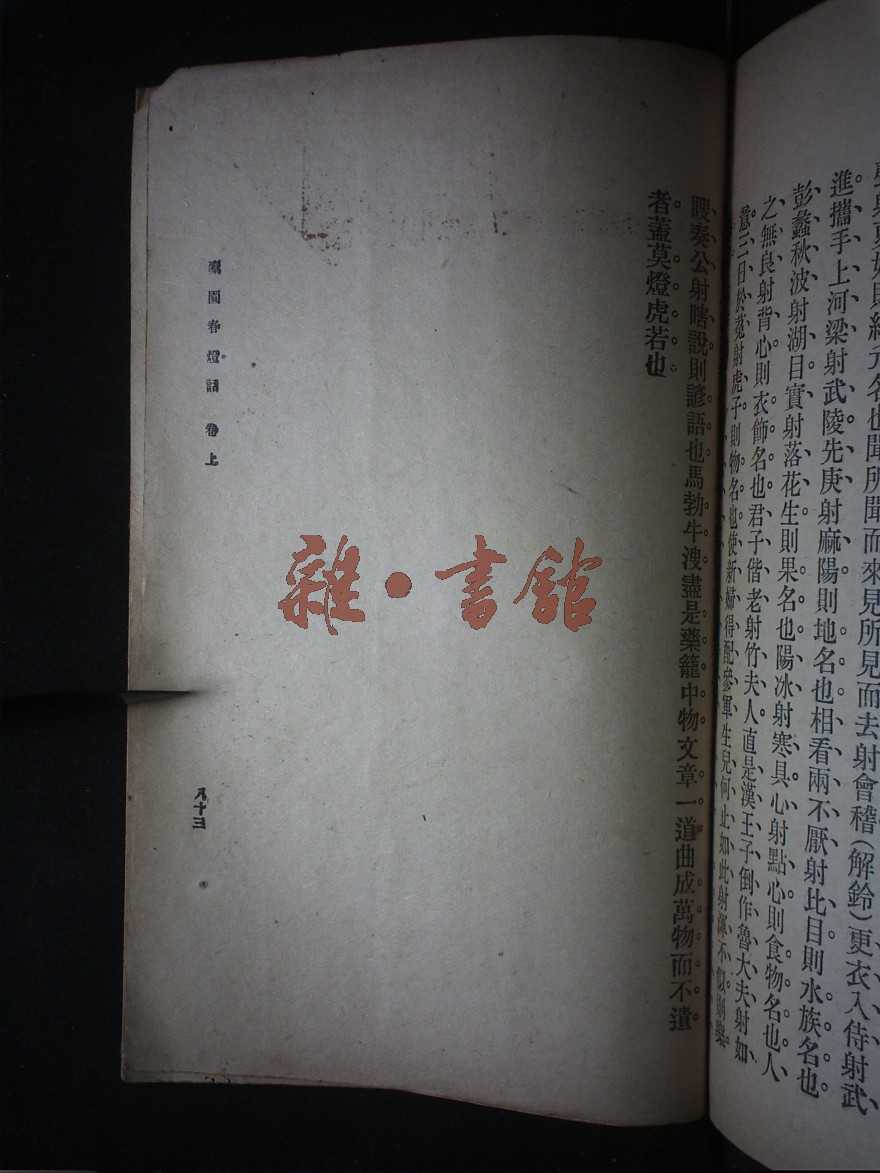 進攜手上河梁射武陵先庚射麻陽則地名也相看兩不厭射比目則水族名也
彭蠡秋波射湖目實射落花生則果名也陽冰射寒具心射點心則食物名也人
之無良射背心則衣飾名也君子偕老射竹夫人直是漢王子倒作魯大夫射如
意三日於菟射虎子則物名也使新婦得配參軍生兒何止如此射渾不似則樂
瞍奏公射瞎說則諺語也馬勃牛溲盡是藥籠中物文章一道曲成萬物而不遺
者蓋莫燈虎若也
園春燈話 卷上
八十三
雜·書館
名也聞所聞而來見所見而去射會稽(解鈴)更衣入侍射武